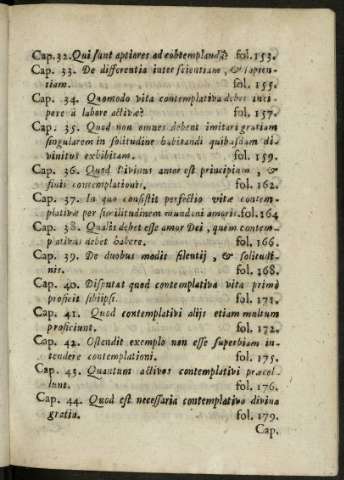 Cap. 32. Qui sunt aptiores ad cōtemplandū? fol. 153.
Cap. 33. De differentia inter scientiam, & sapien-
tiam. fol. 155.
Cap. 34. Quomodo vita contemplativa debet inci-
pere à labore activæ? fol. 157.
Cap. 35. Quod non omnes debent imitari gratiam
singularem in solitudine habitandi quibusdam di-
vinitus exhibitam. fol. 159.
Cap. 36. Quod Divinus amor est principium, &
finis contemplationis. fol. 162.
Cap. 37. In quo consistit perfectio vitæ contem-
plativæ per similitudinem mundani amoris. fol. 164
Cap. 38. Qualis debet esse amor Dei, quem contem-
plativus debet habere. fol. 166.
Cap. 39. De duobus modis silentij, & solitudi-
nis. fol. 168.
Cap. 40. Disputat quod contemplativa vita primò
proficit sibiipsi. fol. 171.
Cap. 41. Quod contemplativi alijs etiam multum
proficiunt. fol. 172.
Cap. 42. Ostendit exemplo non esse superbiam in-
tendere contemplationi. fol. 175.
Cap. 43. Quantum activos contemplativi præcel-
lunt. fol. 176.
Cap. 44. Quod est necessaria contemplativo divina
gratia. fol. 179.
Cap.